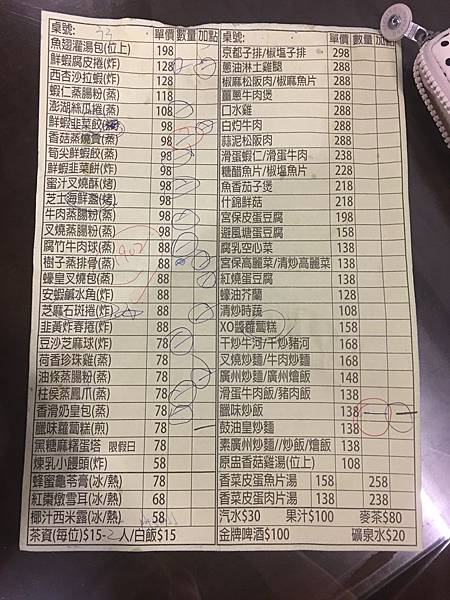 桌號: 單價 數量 加點
魚翅灌湯包(位上) 198
鮮蝦腐皮捲(炸) 128
西杏沙拉蝦(炸) 128
蝦仁蒸腸粉(蒸) 118
澎湖絲瓜捲(蒸) 108
鮮蝦韭菜餃 98
香菇蒸燒賣(蒸) 98
筍尖鮮蝦餃(蒸) 98
鮮蝦韭菜餅(炸) 98
蜜汁叉燒酥(烤) 98
芝士海鮮盞(烤) 98
牛肉蒸腸粉(蒸) 98
叉燒蒸腸粉(蒸) 98
腐竹牛肉球(蒸) 88
樹子蒸排骨(蒸) 88
蠔皇叉燒包(蒸) 88
安蝦鹹水角(炸) 88
芝麻石斑捲(炸) 88
韭黃炸春捲(炸) 88
豆沙芝麻球(炸) 78
荷香珍珠雞(蒸) 78
油條蒸腸粉(蒸) 78
柱侯蒸鳳爪(蒸) 78
香滑奶皇包(蒸) 78
臘味蘿蔔糕(煎) 78
黑糖麻糬蛋塔 限假日 78
煉乳小饅頭(炸) 58
蜂蜜龜苓膏(冰/熱) 78
紅棗燉雪耳(冰/熱) 68
椰汁西米露(冰/熱) 58
茶資(每位)$15-2人/白飯$15
桌號: 單價 數量 加點
京都子排/椒塩子排 298
蔥油淋土雞腿 288
椒麻松阪肉/椒麻魚片 288
薑蔥牛肉煲 288
口水雞 288
白灼牛肉 288
蒜泥松阪肉 288
滑蛋蝦仁/滑蛋牛肉 288
糖醋魚片/椒塩魚片 228
魚香茄子煲 218
什錦鮮菇 218
宮保皮蛋豆腐 198
避風塘蛋豆腐 158
腐乳空心菜 138
宮保高麗菜/清炒高麗菜 138
紅燒蛋豆腐 138
蠔油芥蘭 128
清炒時蔬 108
XO醬蘿蔔糕 158
干炒牛河/干炒豬河 168
叉燒炒麵/牛肉炒麵 168
廣州炒麵/廣州燴飯 148
滑蛋牛肉飯/豬肉飯 138
臘味炒飯 138
鼓油皇炒麵 138
素廣州炒麵//炒飯/燴飯 138
原盅香菇雞湯(位上) 108
香菜皮蛋魚片湯 158 258
香菜皮蛋肉片湯 138 238
汽水$30 果汁$100 麥茶$80
金牌啤酒$100 礦泉水$20
1902